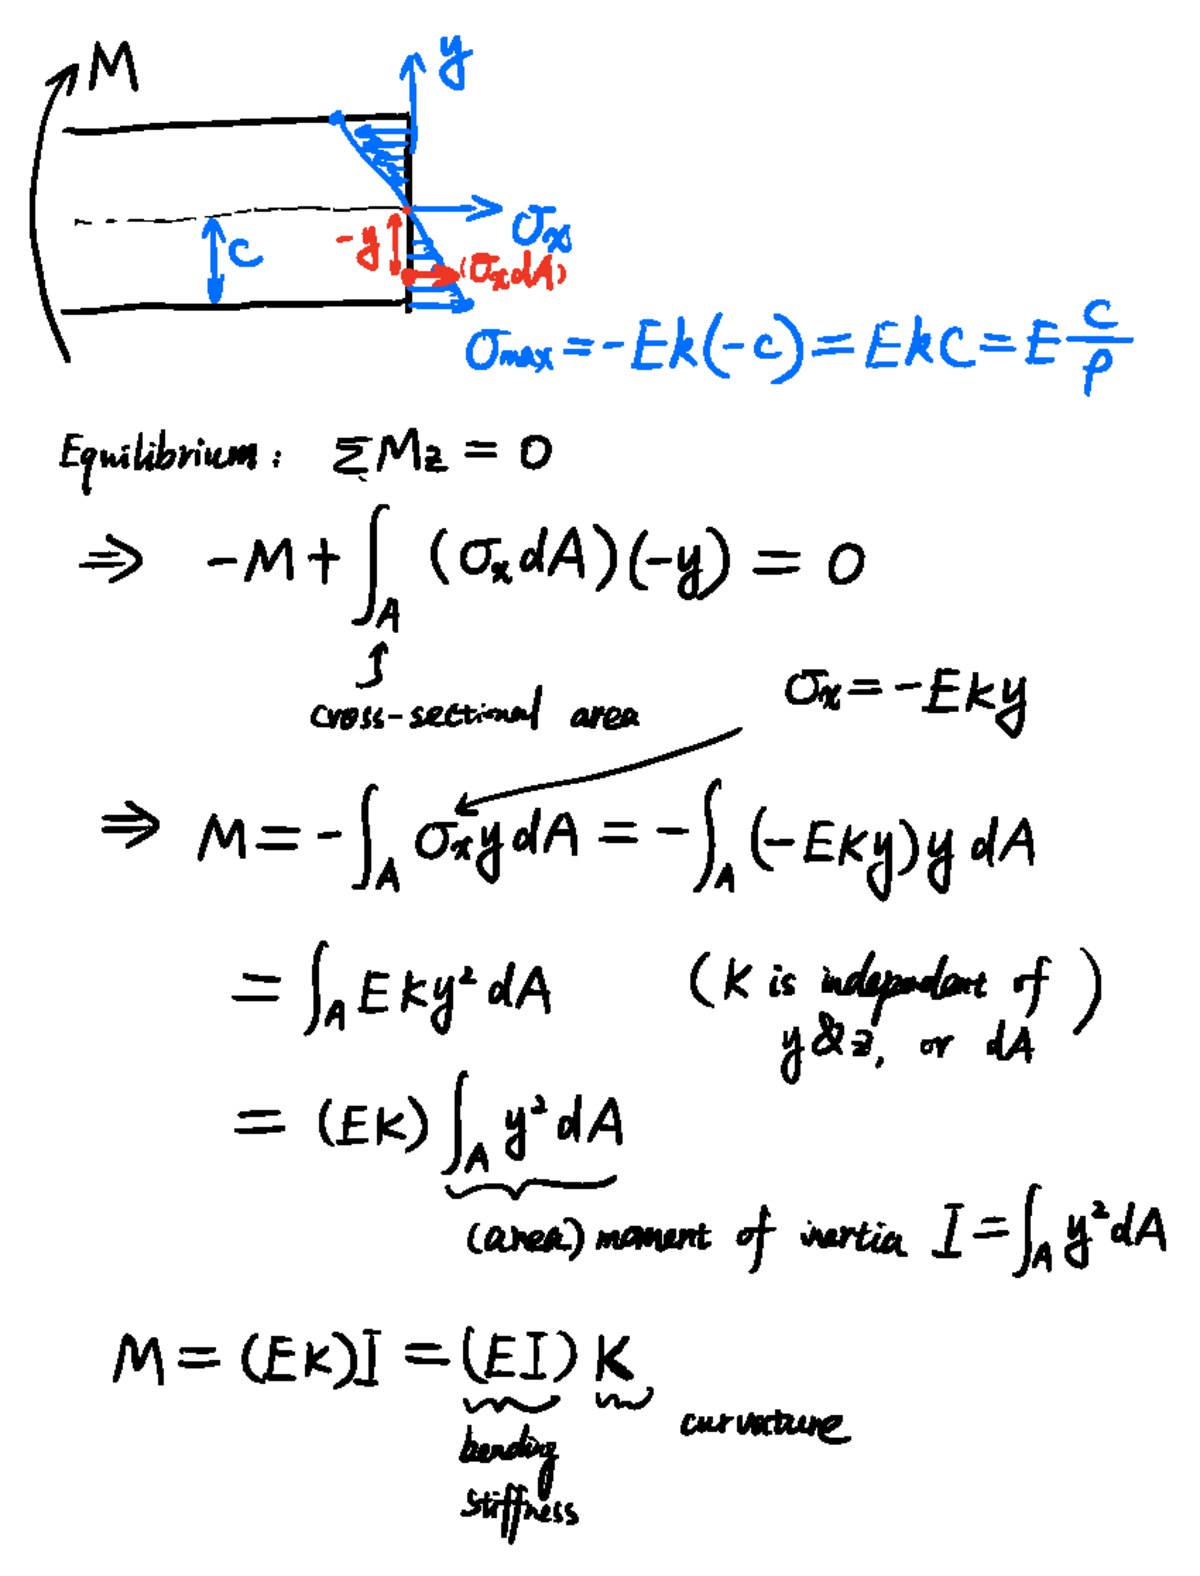 M
y
σx
C
-y
(σx dA)
σmax = -Ek(-c) = EkC = E c/ρ
Equilibrium: ΣMz = 0
⇒ -M + ∫A (σx dA)(-y) = 0
cross-sectional area
σx = -Eky
⇒ M = -∫A σx y dA = -∫A (-Eky) y dA
= ∫A Eky² dA (k is independent of
y & z, or dA)
= (Ek) ∫A y² dA
(area) moment of inertia I = ∫A y² dA
M = (Ek)I = (EI) K
curvature
bending
stiffness